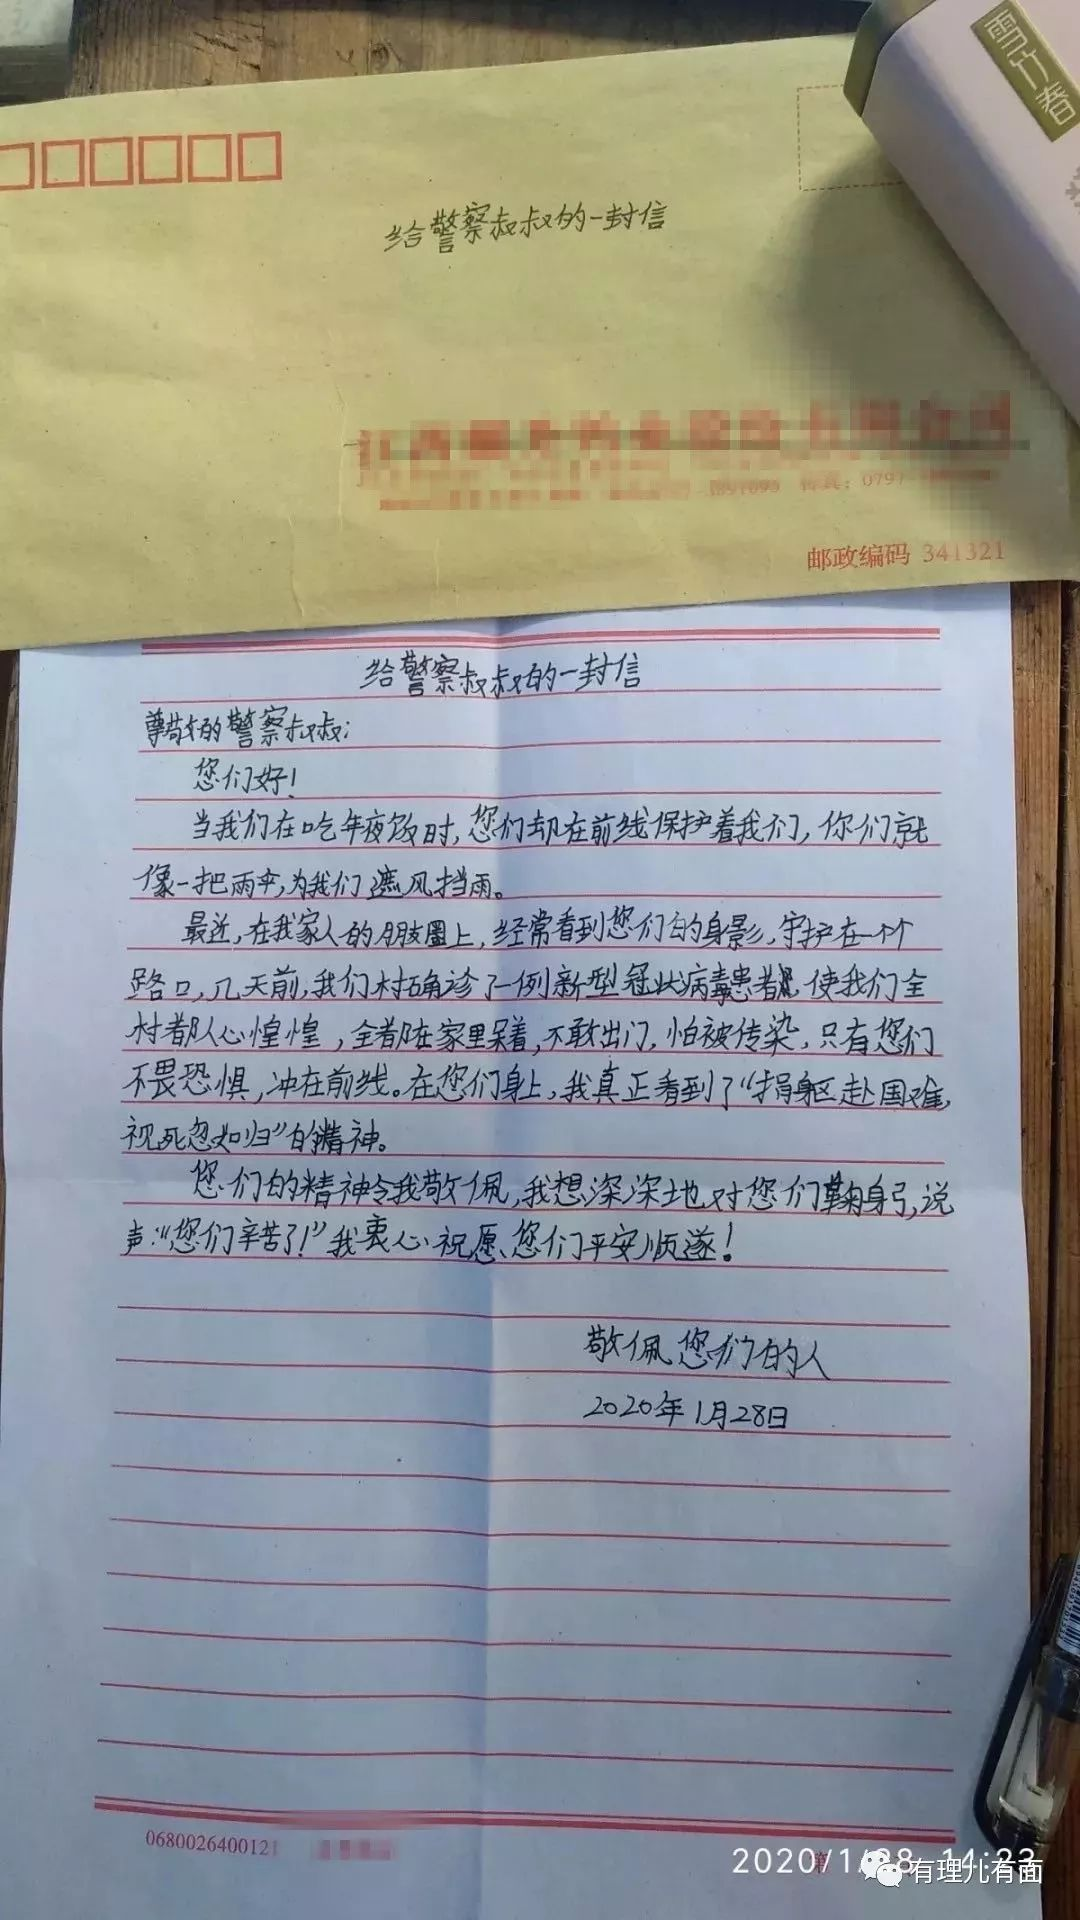 雪
春
给警察叔叔的一封信
传真：0797-
邮政编码 341321
给警察叔叔的一封信
尊敬的警察叔叔：
您们好！
当我们在吃年夜饭时，您们却在前线保护着我们，你们就
像一把雨伞，为我们遮风挡雨。
最近，在我家人的朋友圈上，经常看到您们的身影，守护在一个个
路口，几天前，我们村确诊了一例新型冠状病毒患者，使我们全
村都人心惶惶，全都在家里呆着，不敢出门，怕被传染，只有您们
不畏恐惧，冲在前线。在您们身上，我真正看到了“捐躯赴国难，
视死忽如归”的精神。
您们的精神令我敬佩，我想深深地对您们鞠躬，说
声：“您们辛苦了！”我衷心祝愿您们平安顺遂！
敬佩您们的人
2020年1月28日
0680026400121
2020/1/28 14:23
有理儿有面